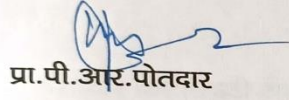 प्रा.पी.आर.पोतदार